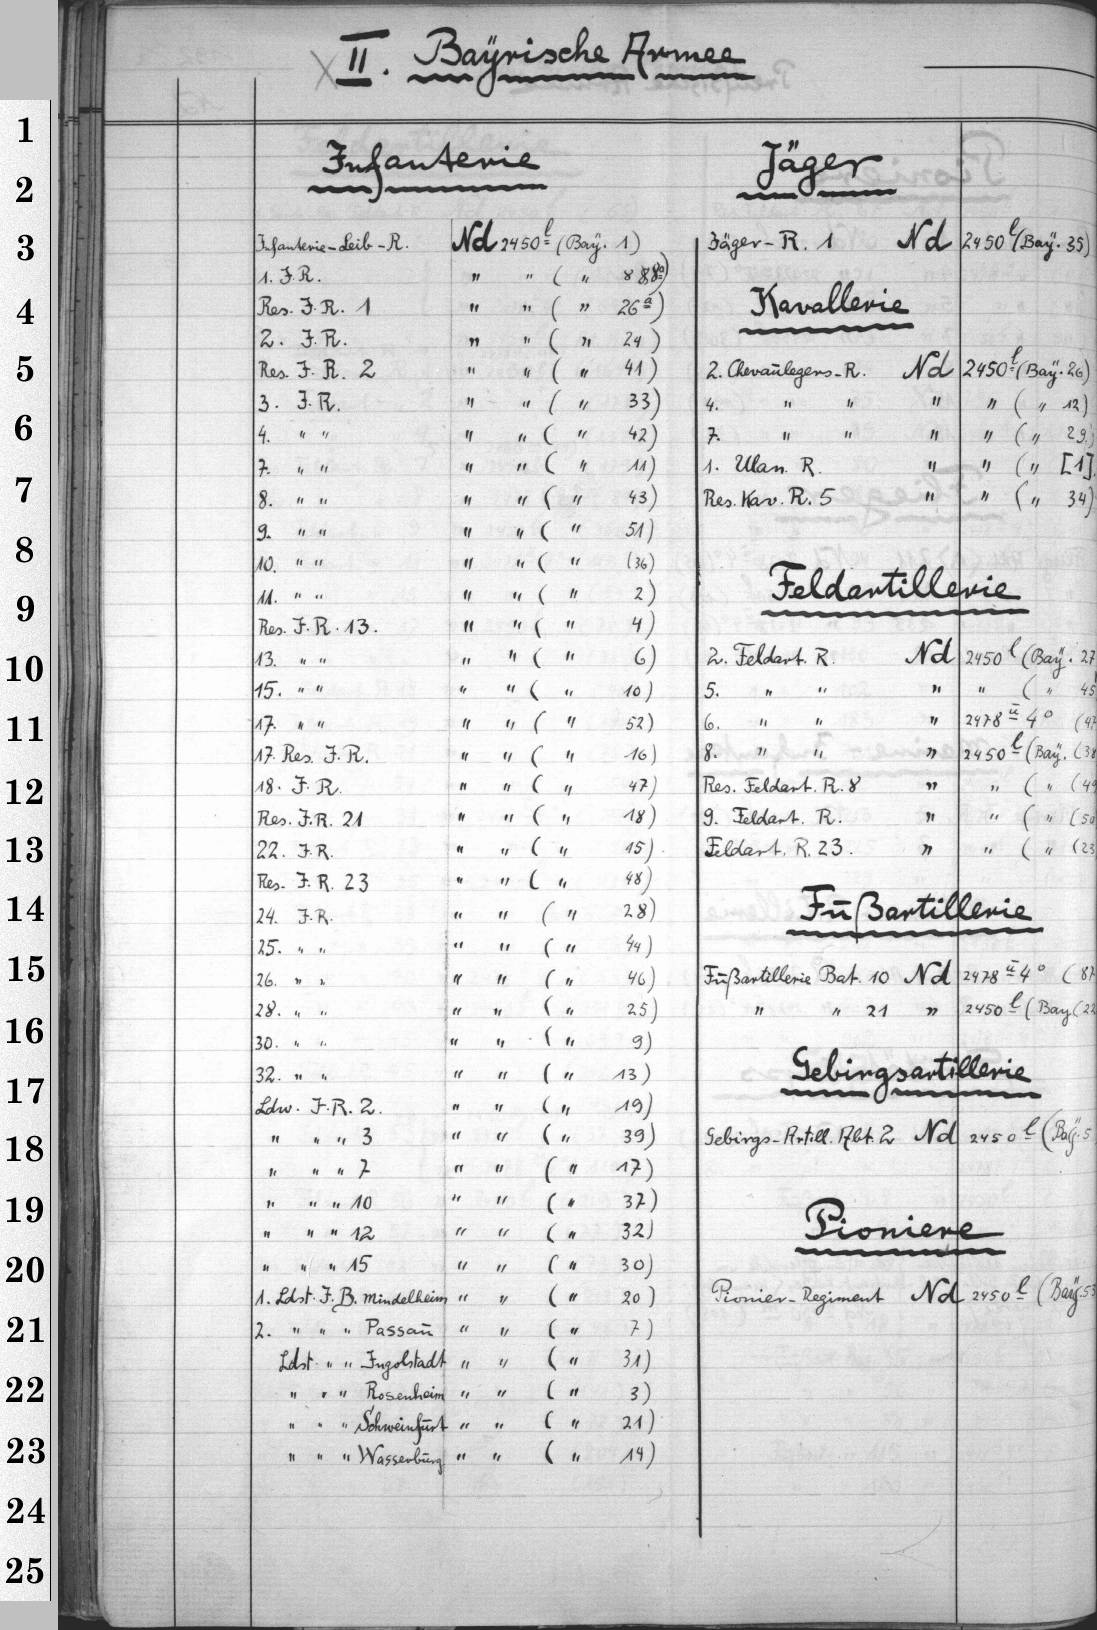 II. Baÿrische Armee
Infanterie
Infanterie-Leib-R. Nd 2450 l (Baÿ. 1)
1. J.R. " " ( " 8 88a)
Res. J.R. 1 " " ( " 26a)
2. J.R. " " ( " 24)
Res. J.R. 2 " " ( " 41)
3. J.R. " " ( " 33)
4. " " " " ( " 42)
7. " " " " ( " 11)
8. " " " " ( " 43)
9. " " " " ( " 51)
10. " " " " ( " (36)
11. " " " " ( " 2)
Res. J.R. 13. " " ( " 4)
13. " " " " ( " 6)
15. " " " " ( " 10)
17. " " " " ( " 52)
17. Res. J.R. " " ( " 16)
18. J.R. " " ( " 47)
Res. J.R. 21 " " ( " 18)
22. J.R. " " ( " 15)
Res. J.R. 23 " " ( " 48)
24. J.R. " " ( " 28)
25. " " " " ( " 44)
26. " " " " ( " 46)
28. " " " " ( " 25)
30. " " " " ( " 9)
32. " " " " ( " 13)
Ldw. J.R. 2. " " ( " 19)
" " " 3 " " ( " 39)
" " " 7 " " ( " 17)
" " " 10 " " ( " 37)
" " " 12 " " ( " 32)
" " " 15 " " ( " 30)
1. Ldst. J. B. Mindelheim " " ( " 20)
2. " " " Passau " " ( " 7)
Ldst. " " Ingolstadt " " ( " 31)
" " " Rosenheim " " ( " 3)
" " " Schweinfurt " " ( " 21)
" " " Wasserburg " " ( " 14)
Jäger
Jäger-R. 1 Nd 2450 l (Baÿ. 35)
Kavallerie
2. Chevaulegers-R. Nd 2450 l (Baÿ. 26)
4. " " " " ( " 12)
7. " " " " ( " 29)
1. Ulan. R. " " ( " [1]
Res. Kav. R. 5 " " ( " 34)
Feldartillerie
2. Feldart. R. Nd 2450 l (Baÿ. 27
5. " " " " ( " 45
6. " " " 2478 u 4° (47
8. " " " 2450 l (Baÿ. (38
Res. Feldart. R. 8 " " ( " (49
9. Feldart. R. " " ( " (50
Feldart. R. 23. " " ( " (23
Fußartillerie
Fußartillerie Bat. 10 Nd 2478 u 4° (87
" " 21 " 2450 l (Bay (22
Gebirgsartillerie
Gebirgs-Artill. Abt. 2 Nd 2450 l (Baÿ. 5
Pioniere
Pionier-Regiment Nd 2450 l (Baÿ. 53
1
2
3
4
5
6
7
8
9
10
11
12
13
14
15
16
17
18
19
20
21
22
23
24
25